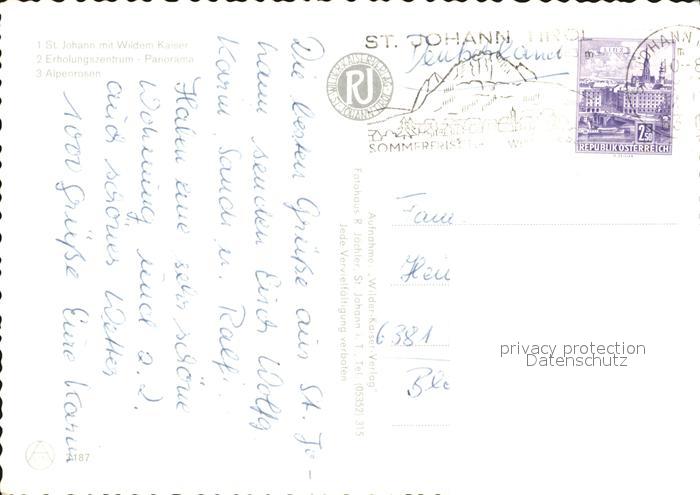 1 St. Johann mit Wildem Kaiser
2 Erholungszentrum - Panorama
3 Alpenrosen
Die besten Grüße aus St. Jo-
hann senden Euch Wolfg.
Karin, Sandr. u. Ralf.
Haben eine sehr schöne
Wohnung und z. Z.
auch schönes Wetter
1000 Grüße Eure Karin
187
Aufnahme „Wilder-Kaiser-Verlag"
Fotohaus R. Jöchler, St. Johann i. T., Tel. (05352) 315
Jede Vervielfältigung verboten
RJ
ST. JOHANN TIROL
SOMMERFRISCHE
LINZ
2.50
REPUBLIK ÖSTERREICH
JOHANN
10-8
Fam.
Hei
6381
privacy protection
Datenschutz